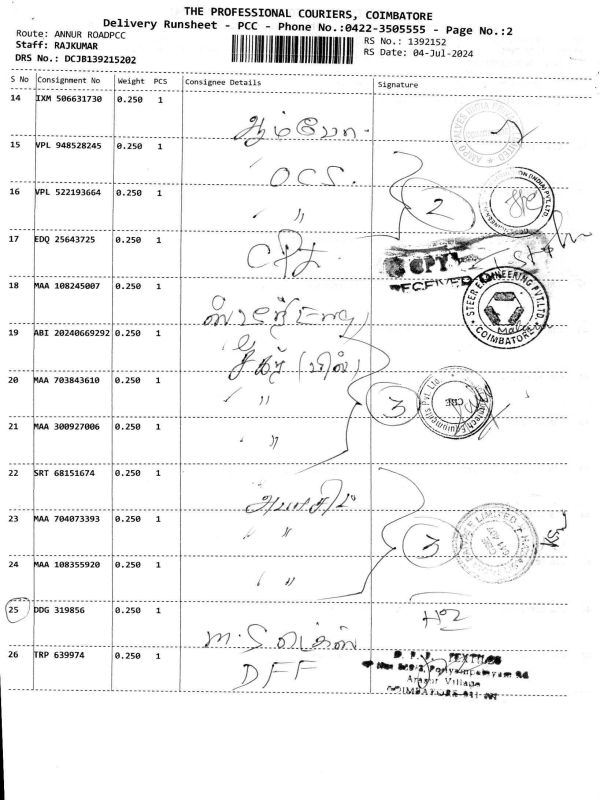 THE PROFESSIONAL COURIERS, COIMBATORE
Delivery Runsheet - PCC - Phone No.:0422-3505555 - Page No.:2
Route: ANNUR ROADPCC
Staff: RAJKUMAR
DRS No.: DCJB139215202
RS No.: 1392152
RS Date: 04-Jul-2024
S No Consignment No Weight PCS Consignee Details Signature
14 IXM 506631730 0.250 1
15 VPL 948528245 0.250 1
OCS.
16 VPL 522193664 0.250 1
" 2
17 EDQ 25643725 0.250 1
CPT
RECEIVED
18 MAA 108245007 0.250 1
STEER ENGINEERING PVT.LTD. COIMBATORE
19 ABI 20240669292 0.250 1
20 MAA 703843610 0.250 1
" 3
21 MAA 300927006 0.250 1
"
22 SRT 68151674 0.250 1
23 MAA 704073393 0.250 1
" 3
24 MAA 108355920 0.250 1
"
25 DDG 319856 0.250 1
26 TRP 639974 0.250 1
DFF
TEXTILES
Village